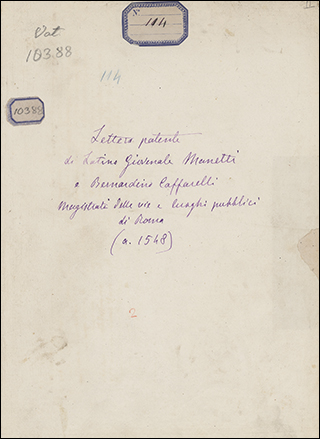 Vat
10388
114
114
10388
Lettera patente
di Latino Giovenale Manetti
e Bernardino Caffarelli
Magistrati delle vie e luoghi pubblici
di Roma
(a. 1548)
2